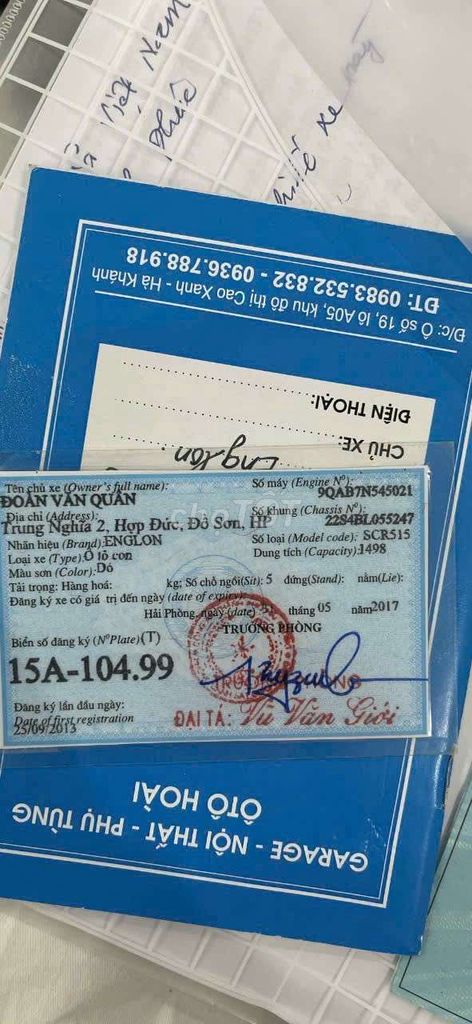 Việt Nam
xe này
ĐT: 0983.532.832 - 0936.788.918
Đ/c: Ô số 19, lô A05, khu đô thị Cao Xanh - Hà Khánh
ĐIỆN THOẠI:
CHỦ XE:
Englon.
Tên chủ xe (Owner's full name):
ĐOÀN VĂN QUÂN
Số máy (Engine Nº):
9QAB7N545021
Địa chỉ (Address):
Trung Nghĩa 2, Hợp Đức, Đồ Sơn, HP
Số khung (Chassis Nº):
22S4BL055247
Nhãn hiệu (Brand): ENGLON
Số loại (Model code): SCR515
Loại xe (Type): Ô tô con
Dung tích (Capacity): 1498
Màu sơn (Color): Đỏ
Tải trọng: Hàng hoá: kg; Số chỗ ngồi(Sit): 5 đứng(Stand): nằm(Lie):
Đăng ký xe có giá trị đến ngày (date of expiry):
Hải Phòng, ngày (date) tháng 05 năm 2017
Biển số đăng ký (NºPlate) (T)
TRƯỞNG PHÒNG
15A-104.99
Đăng ký lần đầu ngày:
Date of first registration
25/09/2013
ĐẠI TÁ: Vũ Văn Giới
chợTỐT
ÔTÔ HOÀI
GARAGE - NỘI THẤT - PHỤ TÙNG